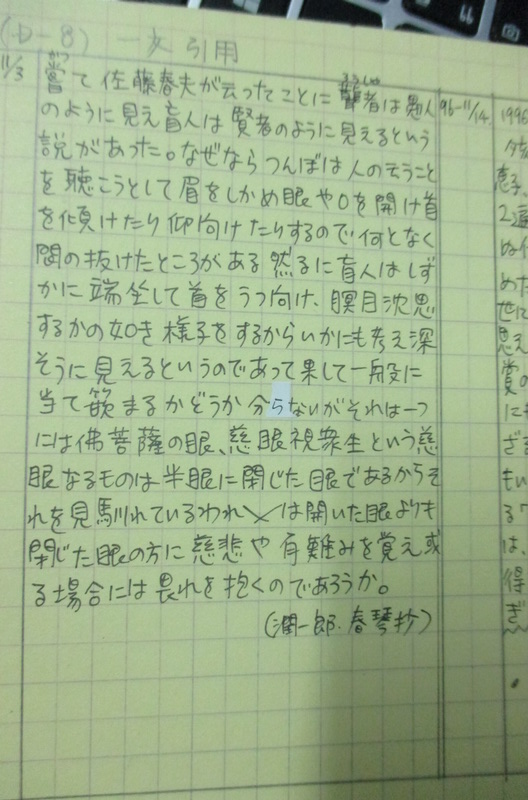 (D-8) 一文引用
11/3
かつ
嘗て佐藤春夫が云ったことに聾者は愚人
ろうしゃ
のように見え盲人は賢者のように見えるという
説があった。なぜならつんぼは人の云うこと
を聴こうとして眉をしかめ眼や口を開け首
を傾けたり仰向けたりするので何となく
間の抜けたところがある然るに盲人はしず
かに端坐して首をうつ向け、瞑目沈思
するかの如き様子をするからいかにも考え深
そうに見えるというのであって果して一般に
当て篏まるかどうか分らないがそれは一つ
には佛菩薩の眼、慈眼視衆生という慈
眼なるものは半眼に閉じた眼であるからそ
れを見馴れているわれ〱は開いた眼よりも
閉じた眼の方に慈悲や有難みを覚え或
る場合には畏れを抱くのであろうか。
(潤一郎・春琴抄)
96-11/14
1996